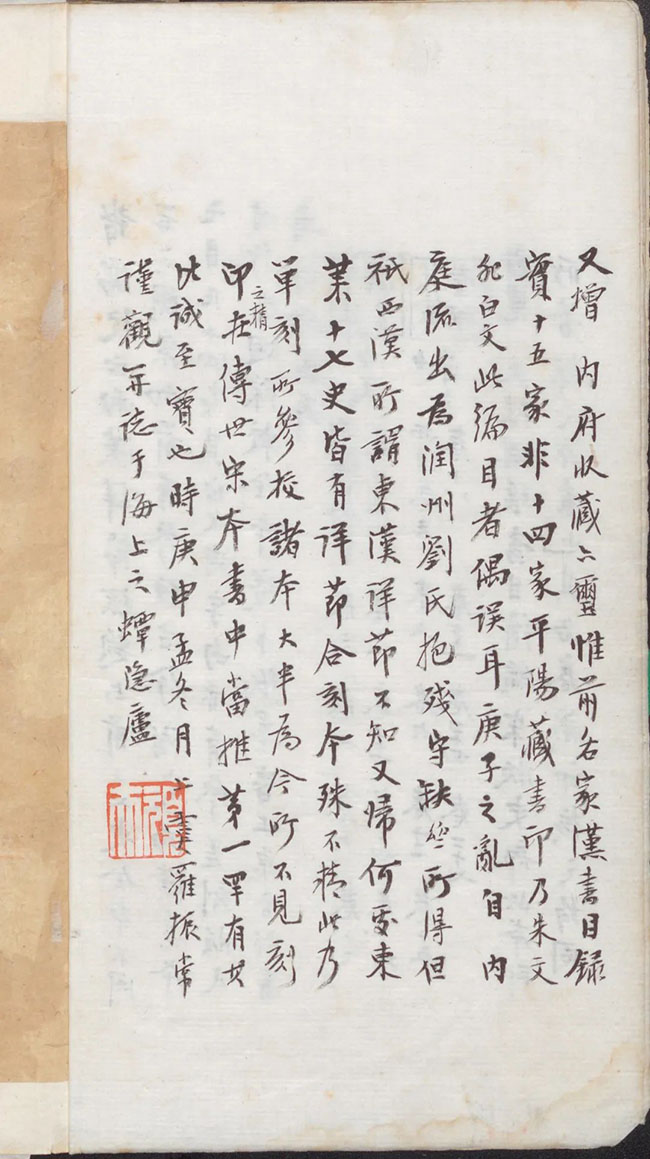 又增 內府收藏六璽惟前名家漢書目錄
實十五家非十四家平陽藏書印乃朱文
非白文此編目者偶误耳庚子之亂自 内
庭流出為润州劉氏抱残守缺盦所得但
祇西漢所謂東漢详節不知又帰何處東
莱十七史皆有详節合刻本殊不精此乃
單刻所參挍諸本大半為今所不見刻
印之精在傳世宋本書中當推第一罕有其
比诚至寶也時庚申孟冬月上虞羅振常
谨觀并誌于海上之蟫隐廬